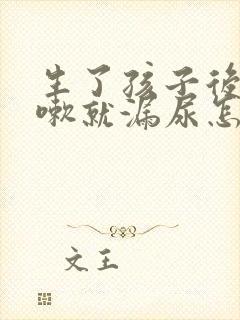 生了孩子後
嗽就漏尿怎
文王